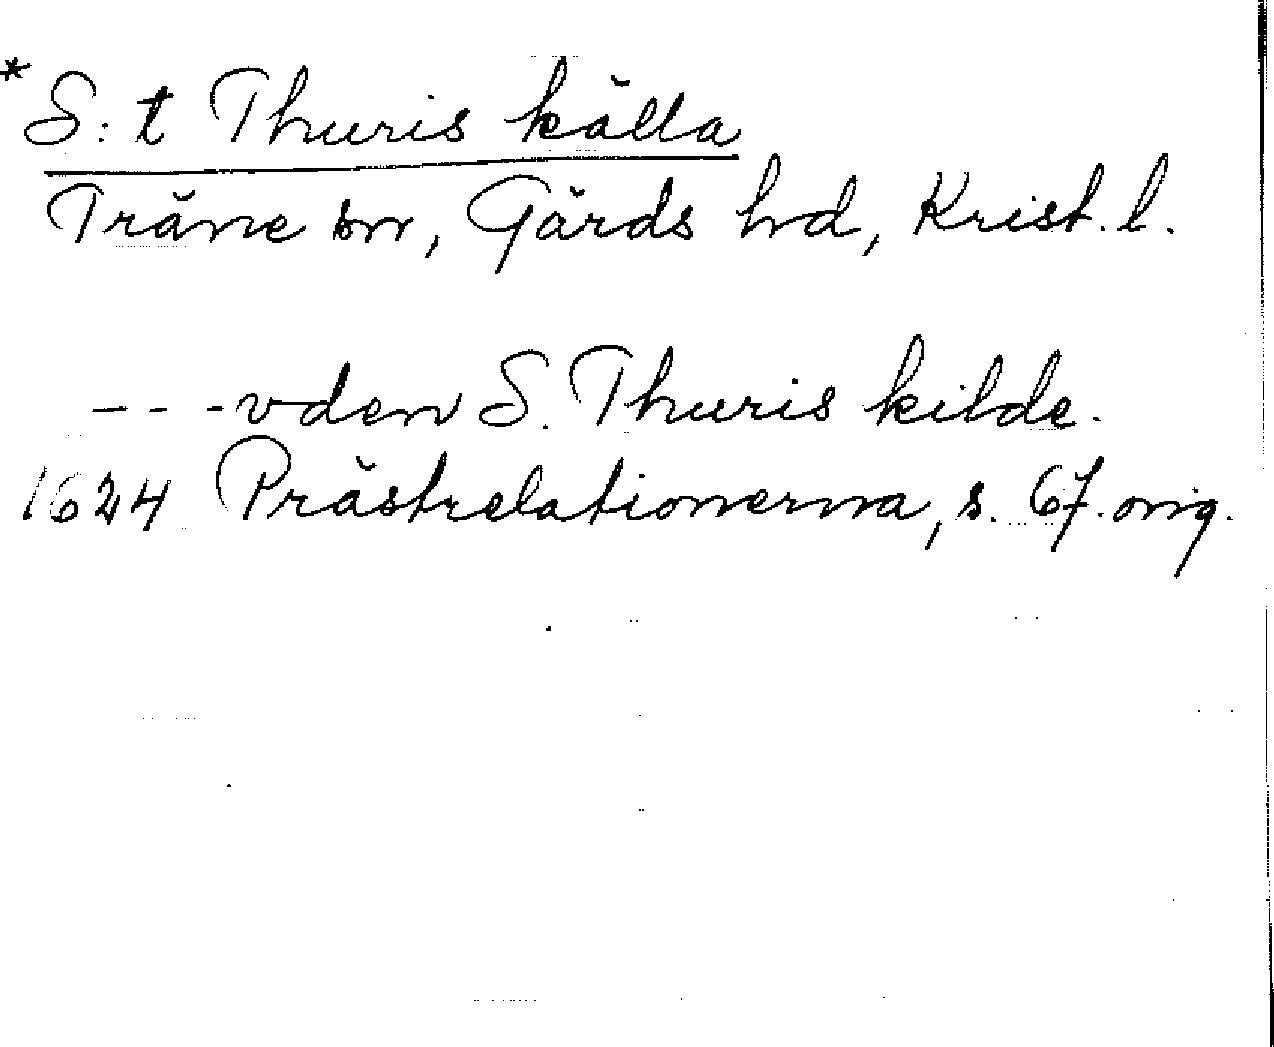 * S:t Thuris källa
Träne sn, Gärds hd, Krist. l.
---vden S. Thuris kilde.
1624 Prästrelationerna, s. 67. orig.